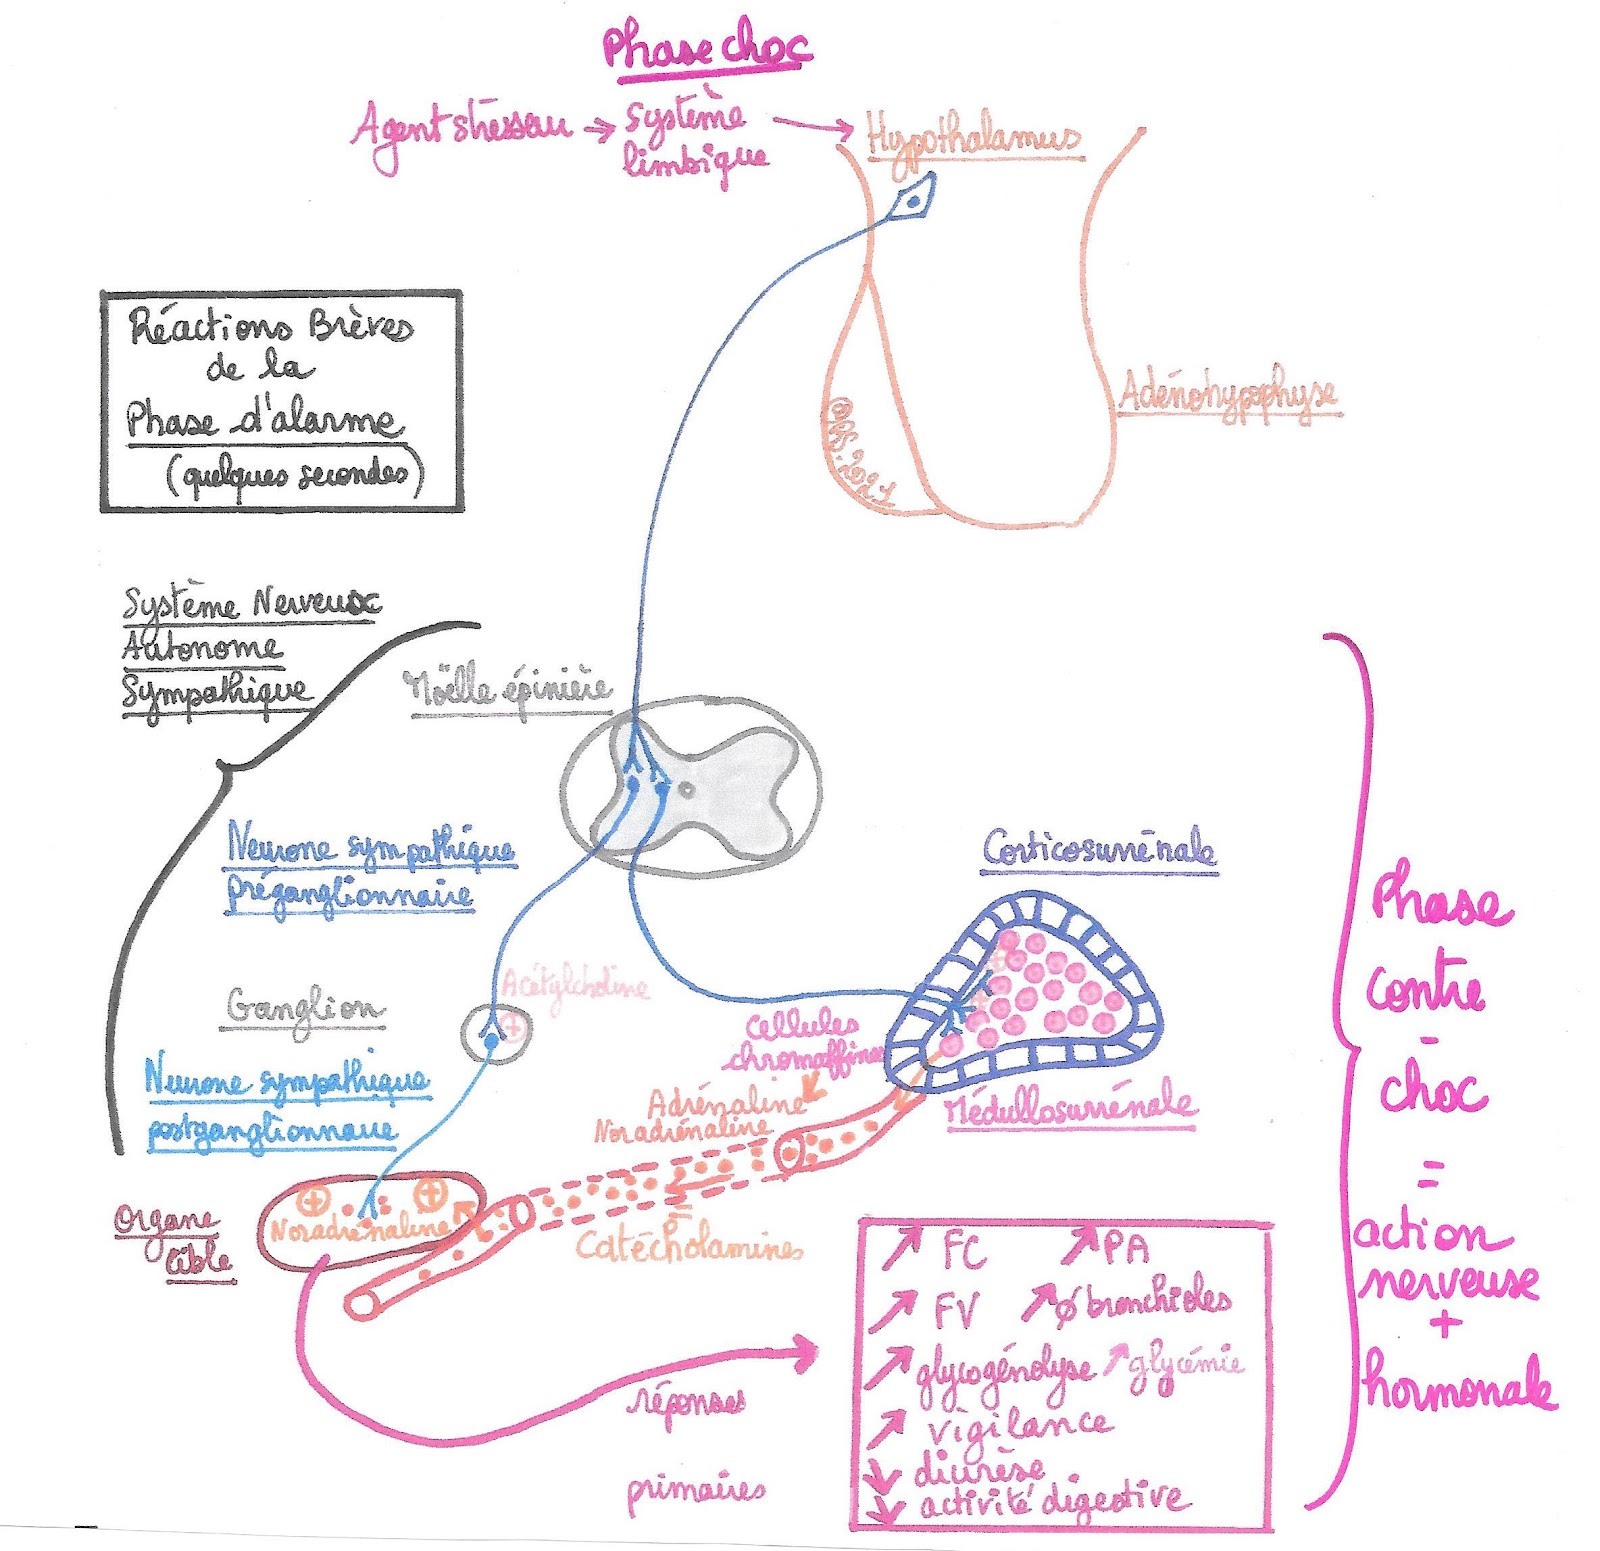 Phase choc
Agent stresseu → système
limbique
→ Hypothalamus
Réactions Brèves
de la
Phase d'alarme
(quelques secondes)
Adénohypophyse
Système Nerveux
Autonome
Sympathique
Moëlle épinière
Neurone sympathique
préganglionnaire
Corticosurrénale
Acétylcholine
Ganglion
cellules
chromaffines
Neurone sympathique
postganglionnaire
Adrénaline
Noradrénaline
Médullosurrénale
Organe
cible
Noradrénaline
=
Catécholamines
réponses
primaires
↗ FC ↗ PA
↗ FV ↗ ø bronchioles
↗ glycogénolyse ↗ glycémie
↗ vigilance
↘ diurèse
↘ activité digestive
Phase
contre
-
choc
=
action
nerveuse
+
hormonale